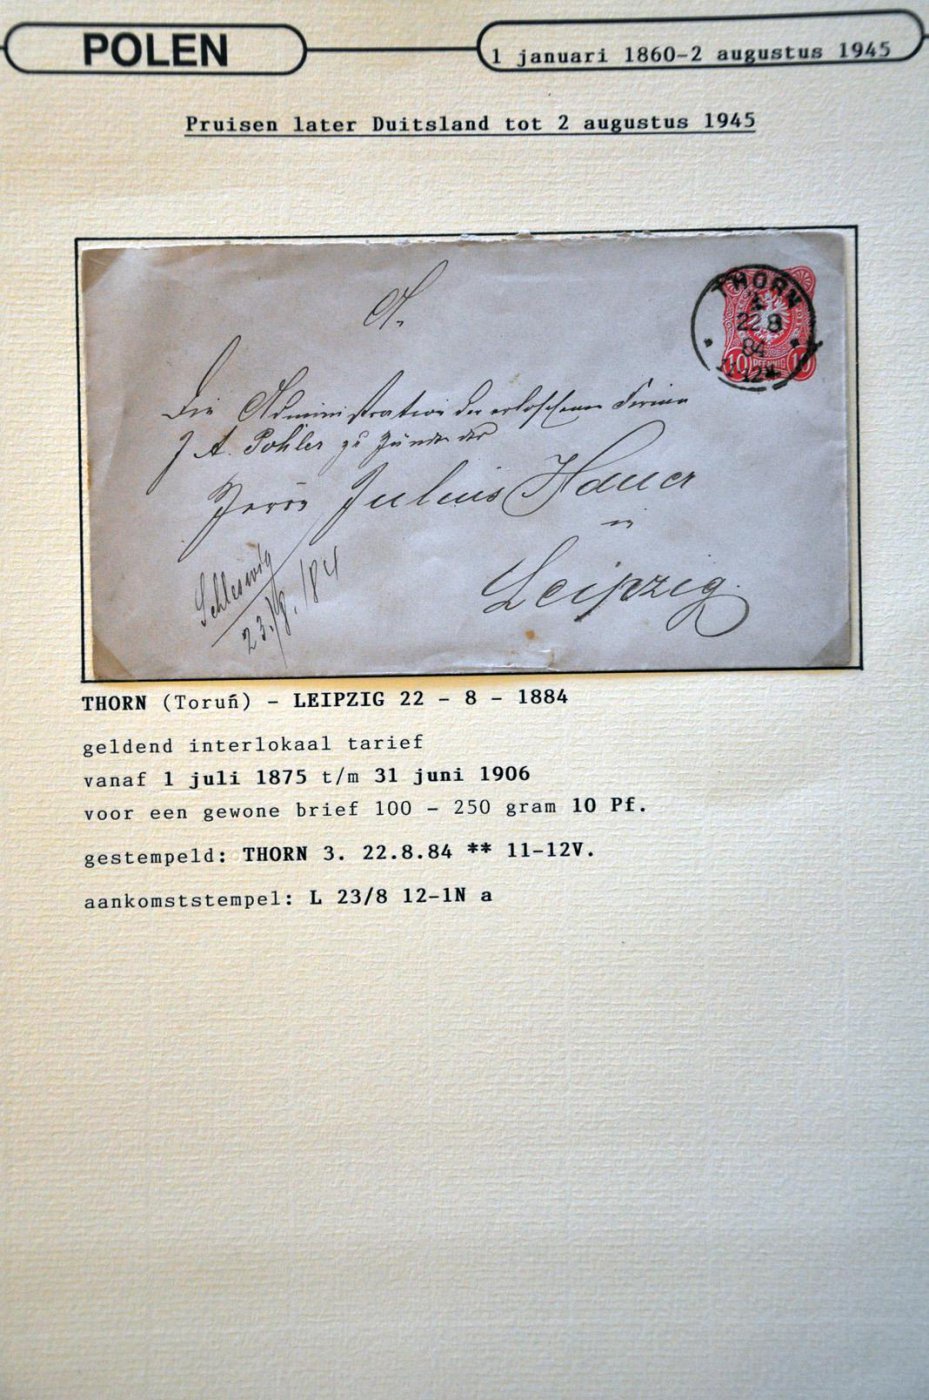 POLEN
1 januari 1860-2 augustus 1945
Pruisen later Duitsland tot 2 augustus 1945
THORN
22 8
84
10 PFENNIG 10
A.
Die Administration der erloschenen Firma
J. A. Pohler zu
Herrn Julius Hauer
in
Leipzig.
Schleswig
23./8./84
THORN (Toruń) - LEIPZIG 22 - 8 - 1884
geldend interlokaal tarief
vanaf 1 juli 1875 t/m 31 juni 1906
voor een gewone brief 100 - 250 gram 10 Pf.
gestempeld: THORN 3. 22.8.84 ** 11-12V.
aankomststempel: L 23/8 12-1N a